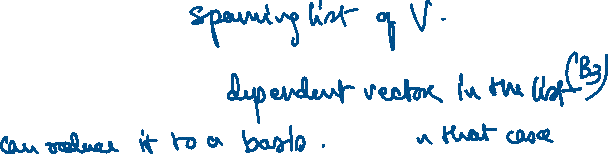 spanning list of V.
dependent vector in the list (B2)
can reduce it to a basis. n that case